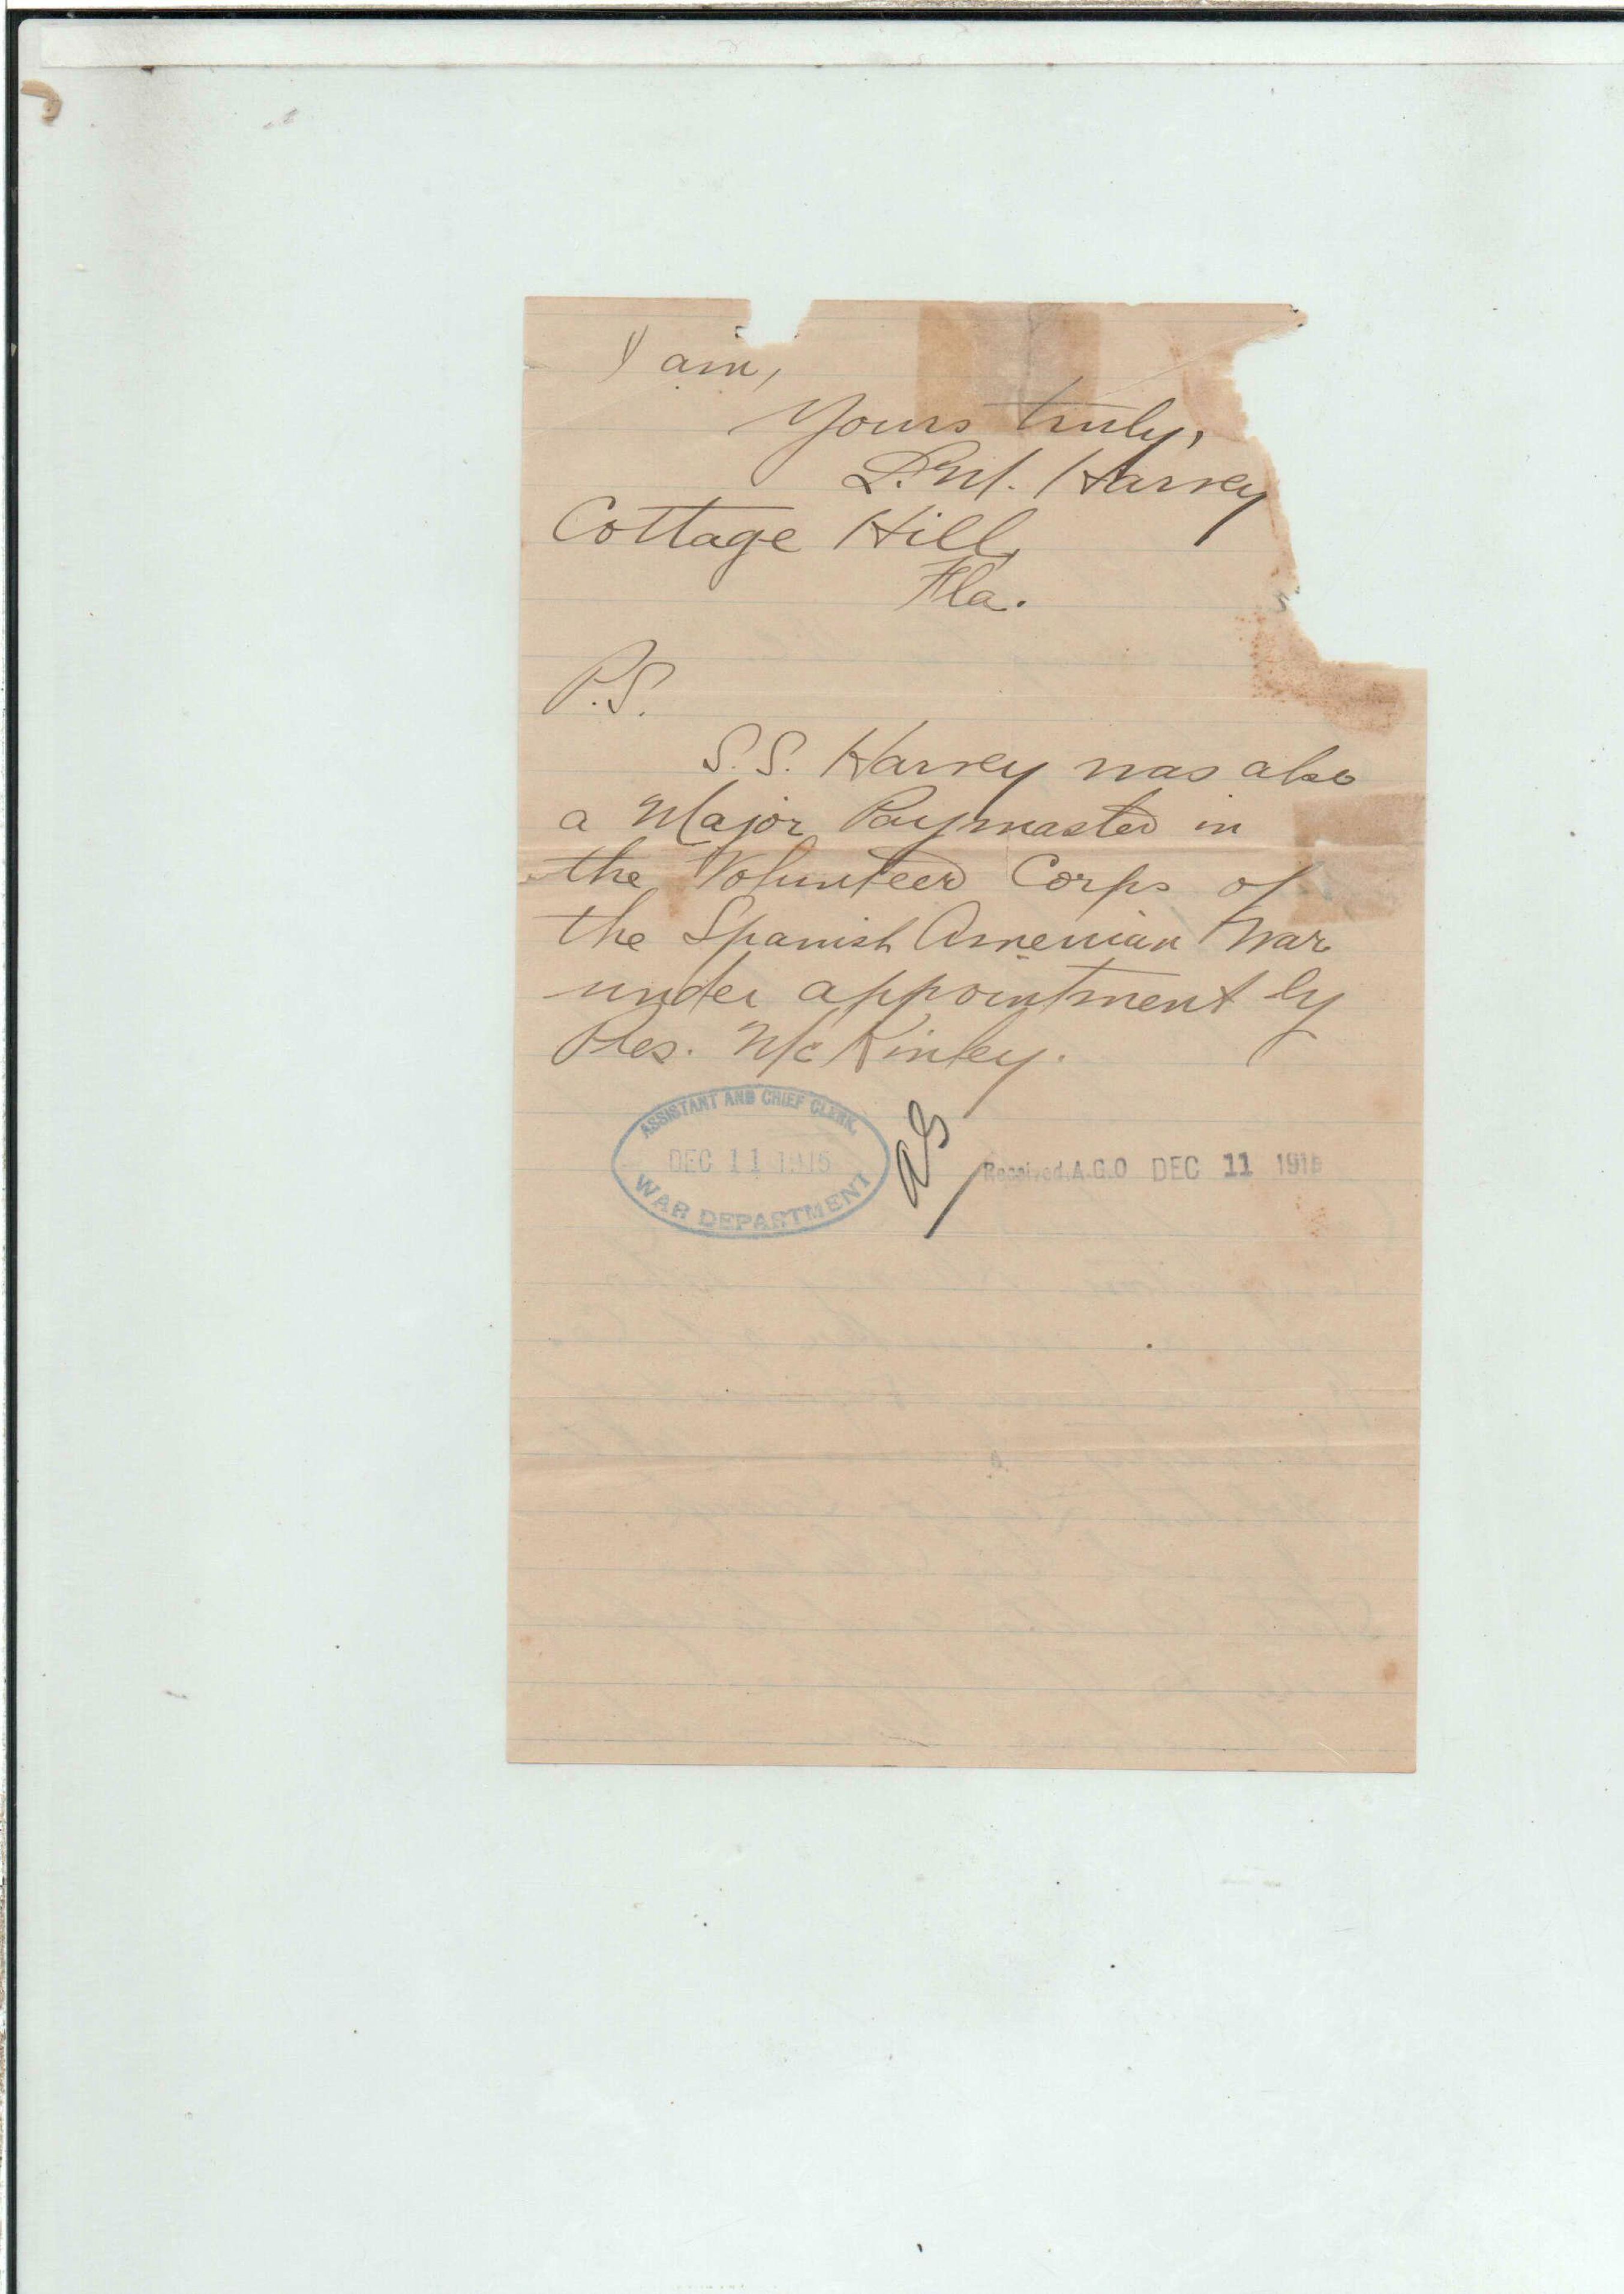 I am,
Yours truly,
L.M. Harvey
Cottage Hill,
Fla.
P.S.
S.S. Harvey was also
a Major Paymaster in
the Volunteer Corps of
the Spanish American War
under appointment by
Pres. McKinley.
ASSISTANT AND CHIEF CLERK.
DEC 11 1915
WAR DEPARTMENT
Received.A.G.O DEC 11 1915